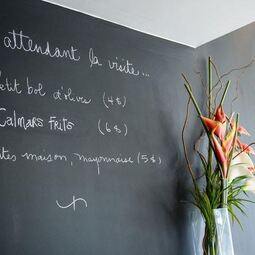 attendant la visite...
etit bol d'olives (4$)
Calmars Frits (6$)
tes maison, mayonnaise (5$)